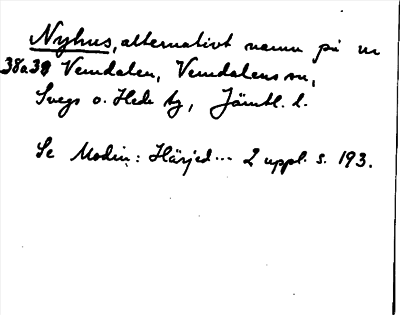 Nyhus, alternativt namn på nr
38a39 Vemdalen, Vemdalens sn,
Svegs o. Hede tg, Jämtl. l.
Se Modin: Härjed... 2 uppl. s. 193.